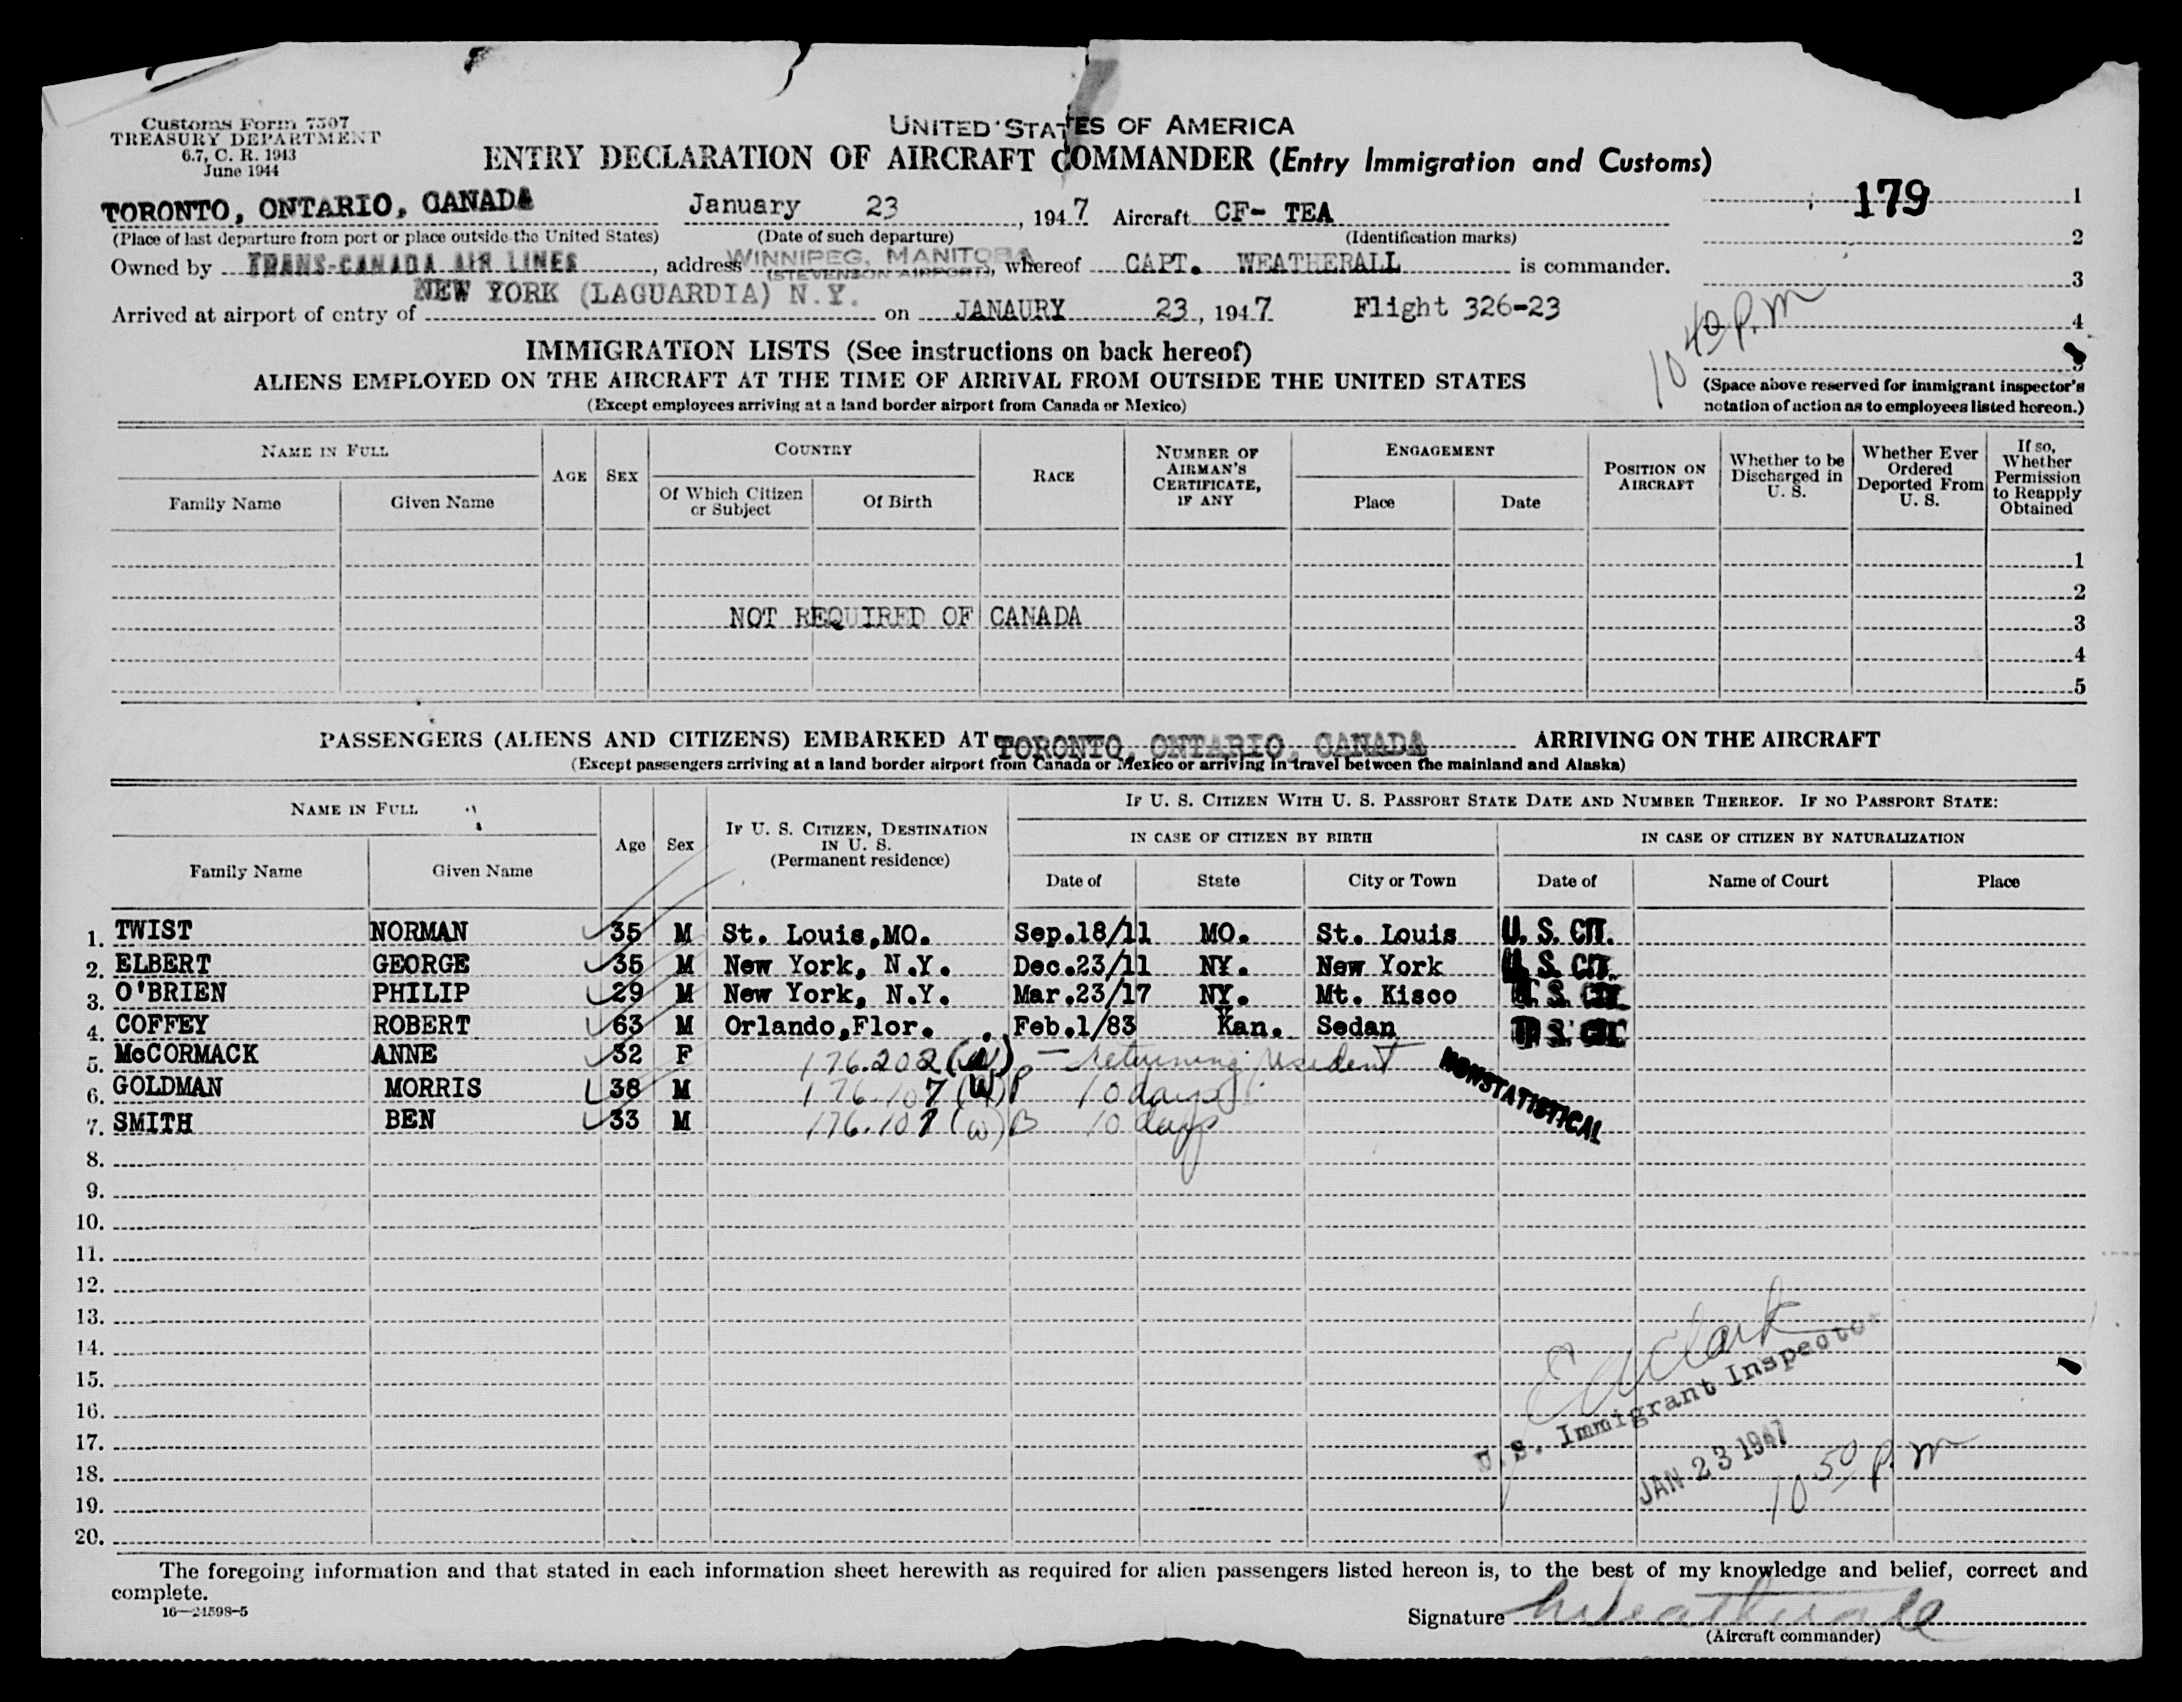 Customs Form 7507
TREASURY DEPARTMENT
6.7, C. R. 1943
June 1944
UNITED STATES OF AMERICA
ENTRY DECLARATION OF AIRCRAFT COMMANDER (Entry Immigration and Customs)
179 1
TORONTO, ONTARIO, CANADA January 23, 1947 Aircraft CF- TEA
(Place of last departure from port or place outside the United States) (Date of such departure) (Identification marks) 2
Owned by TRANS-CANADA AIR LINES, address WINNIPEG, MANITOBA (STEVENSON AIRPORT), whereof CAPT. WEATHERALL is commander.
3
Arrived at airport of entry of NEW YORK (LAGUARDIA) N.Y. on JANAURY 23, 1947 Flight 326-23
10 40 p.m 4
5
IMMIGRATION LISTS (See instructions on back hereof)
ALIENS EMPLOYED ON THE AIRCRAFT AT THE TIME OF ARRIVAL FROM OUTSIDE THE UNITED STATES
(Except employees arriving at a land border airport from Canada or Mexico)
(Space above reserved for immigrant inspector's
notation of action as to employees listed hereon.)
NAME IN FULL AGE SEX COUNTRY RACE NUMBER OF AIRMAN'S CERTIFICATE, IF ANY ENGAGEMENT POSITION ON AIRCRAFT Whether to be Discharged in U. S. Whether Ever Ordered Deported From U. S. If so, Whether Permission to Reapply Obtained
Family Name Given Name Of Which Citizen or Subject Of Birth Place Date
1
2
NOT REQUIRED OF CANADA 3
4
5
PASSENGERS (ALIENS AND CITIZENS) EMBARKED AT TORONTO, ONTARIO, CANADA ARRIVING ON THE AIRCRAFT
(Except passengers arriving at a land border airport from Canada or Mexico or arriving in travel between the mainland and Alaska)
NAME IN FULL Age Sex IF U. S. CITIZEN, DESTINATION IN U. S. (Permanent residence) IF U. S. CITIZEN WITH U. S. PASSPORT STATE DATE AND NUMBER THEREOF. IF NO PASSPORT STATE:
IN CASE OF CITIZEN BY BIRTH IN CASE OF CITIZEN BY NATURALIZATION
Family Name Given Name Date of State City or Town Date of Name of Court Place
1. TWIST NORMAN 35 M St. Louis,MO. Sep.18/11 MO. St. Louis U. S. CIT.
2. ELBERT GEORGE 35 M New York, N.Y. Dec.23/11 NY. New York U. S. CIT.
3. O'BRIEN PHILIP 29 M New York, N.Y. Mar.23/17 NY. Mt. Kisco U. S. CIT.
4. COFFEY ROBERT 63 M Orlando,Flor. Feb.1/83 Kan. Sedan U. S. CIT.
5. McCORMACK ANNE 32 F 176.202 (W) - returning resident
NONSTATISTICAL
6. GOLDMAN MORRIS 38 M 176.107 (W) P 10 days
7. SMITH BEN 33 M 176.107 (W) B 10 days
8.
9.
10.
11.
12.
13.
14.
15.
16.
17.
18.
19.
20.
E A Clark
U.S. Immigrant Inspector
JAN 23 1947
10 50 p.m
The foregoing information and that stated in each information sheet herewith as required for alien passengers listed hereon is, to the best of my knowledge and belief, correct and
complete.
16—24598-5
Signature Weatherall
(Aircraft commander)